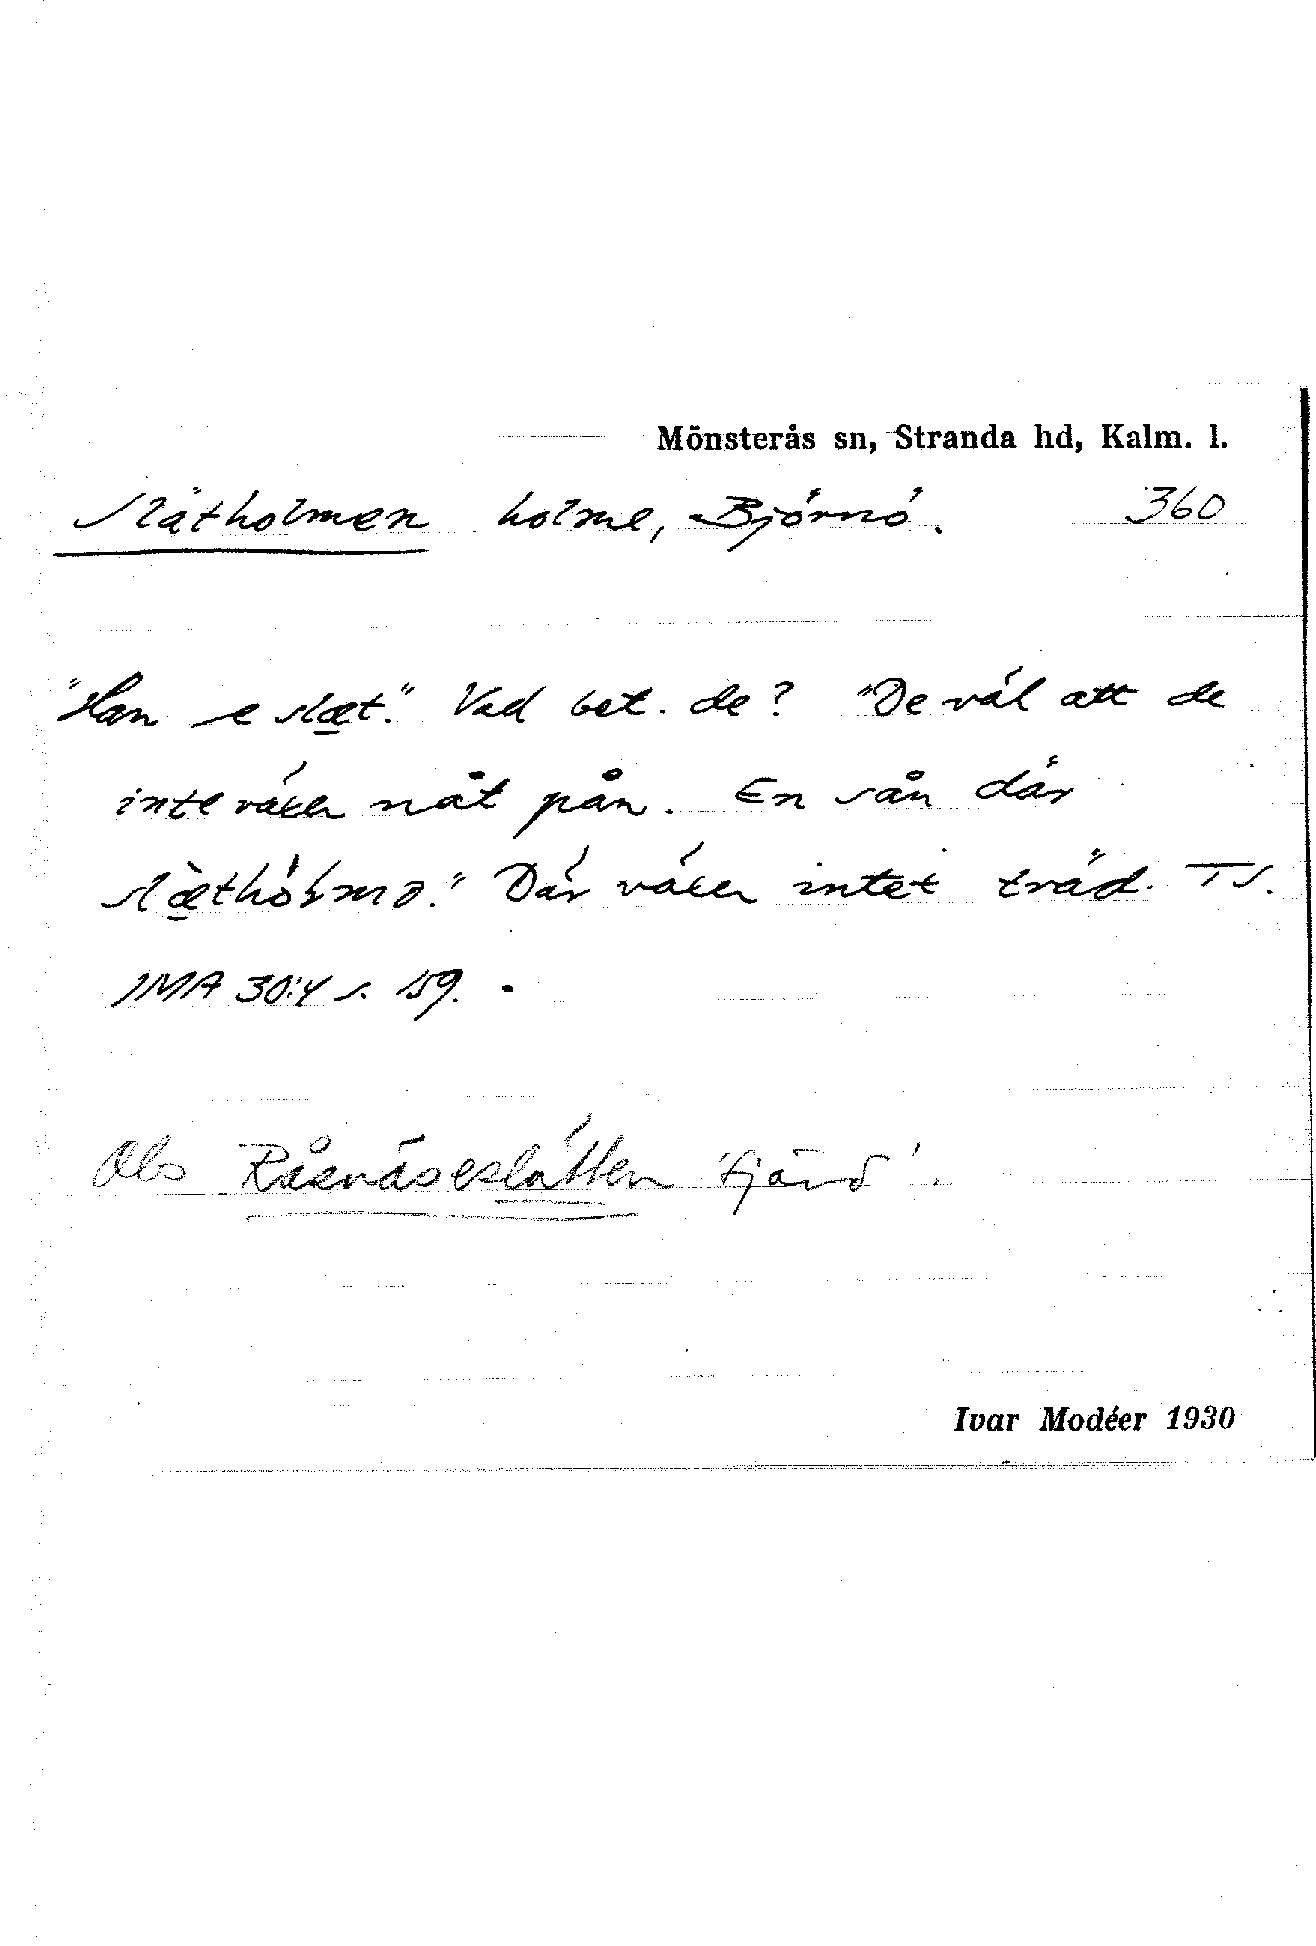 Mönsterås sn, Stranda hd, Kalm. l.
Slätholmen holme, Björnö. 360
"Han e slæt." Vad bet. de? "De väl att de
inte växer nåt pån. En sån där
slæ̀thólmə." Där växer intet träd. TS.
IMA 30:4 s. 159.
Obs Råsnäseslätten 'fjärd'.
Ivar Modéer 1930